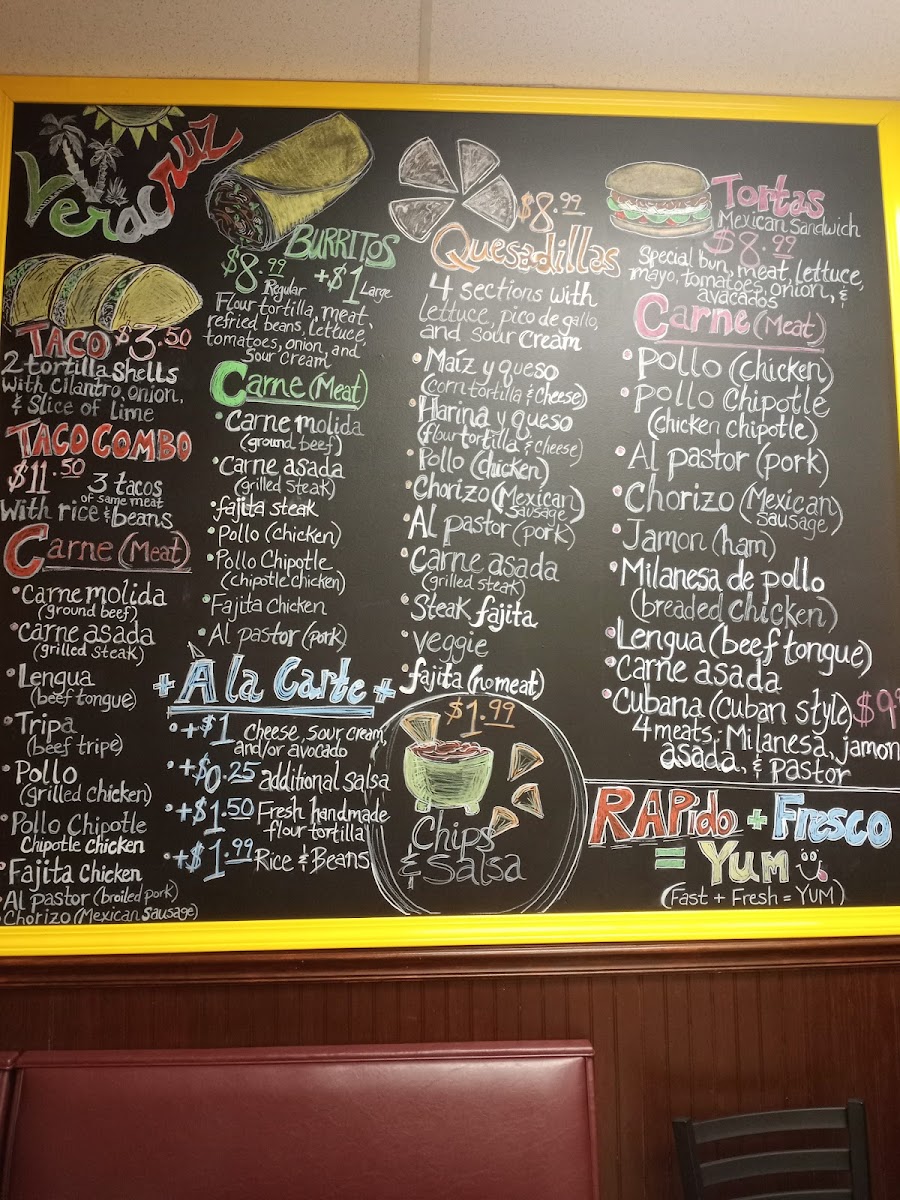 Veracruz
TACO $3.50
2 tortilla shells
with cilantro, onion,
& slice of lime
TACO COMBO
$11.50 3 tacos
of same meat
with rice & beans
Carne (Meat)
• Carne molida
(ground beef)
• carne asada
(grilled steak)
• Lengua
(beef tongue)
• Tripa
(beef tripe)
• Pollo
(grilled chicken)
• Pollo Chipotle
Chipotle chicken
• Fajita Chicken
• Al pastor (broiled pork)
• Chorizo (Mexican Sausage)
BURRITOS
$8.99 +$1
Regular Large
Flour tortilla, meat,
refried beans, lettuce,
tomatoes, onion, and
sour cream
Carne (Meat)
• Carne molida
(ground beef)
• Carne asada
(grilled steak)
• fajita steak
• Pollo (chicken)
• Pollo Chipotle
(chipotle chicken)
• Fajita Chicken
• Al pastor (pork)
+ A la Carte +
• +$1 Cheese, sour cream,
and/or avocado
• +$0.25 additional salsa
• +$1.50 Fresh handmade
flour tortilla
• +$1.99 Rice & Beans
$8.99
Quesadillas
4 sections with
lettuce, pico de gallo,
and sour cream
• Maíz y queso
(corn tortilla & cheese)
• Harina y queso
(flour tortilla & cheese)
• Pollo (chicken)
• Chorizo (Mexican
sausage)
• Al pastor (pork)
• Carne asada
(grilled steak)
• Steak fajita
• veggie
• fajita (no meat)
$1.99
Chips
& Salsa
Tortas
Mexican Sandwich
$8.99
Special bun, meat, lettuce,
mayo, tomatoes, onion, &
avacados
Carne (Meat)
• Pollo (chicken)
• Pollo Chipotle
(chicken chipotle)
• Al pastor (pork)
• Chorizo (Mexican
sausage)
• Jamon (ham)
• Milanesa de pollo
(breaded chicken)
• Lengua (beef tongue)
• carne asada
• Cubana (Cuban style) $9
4 meats: Milanesa, jamon
asada, & pastor
RAPido + Fresco
= Yum
(Fast + Fresh = YUM)